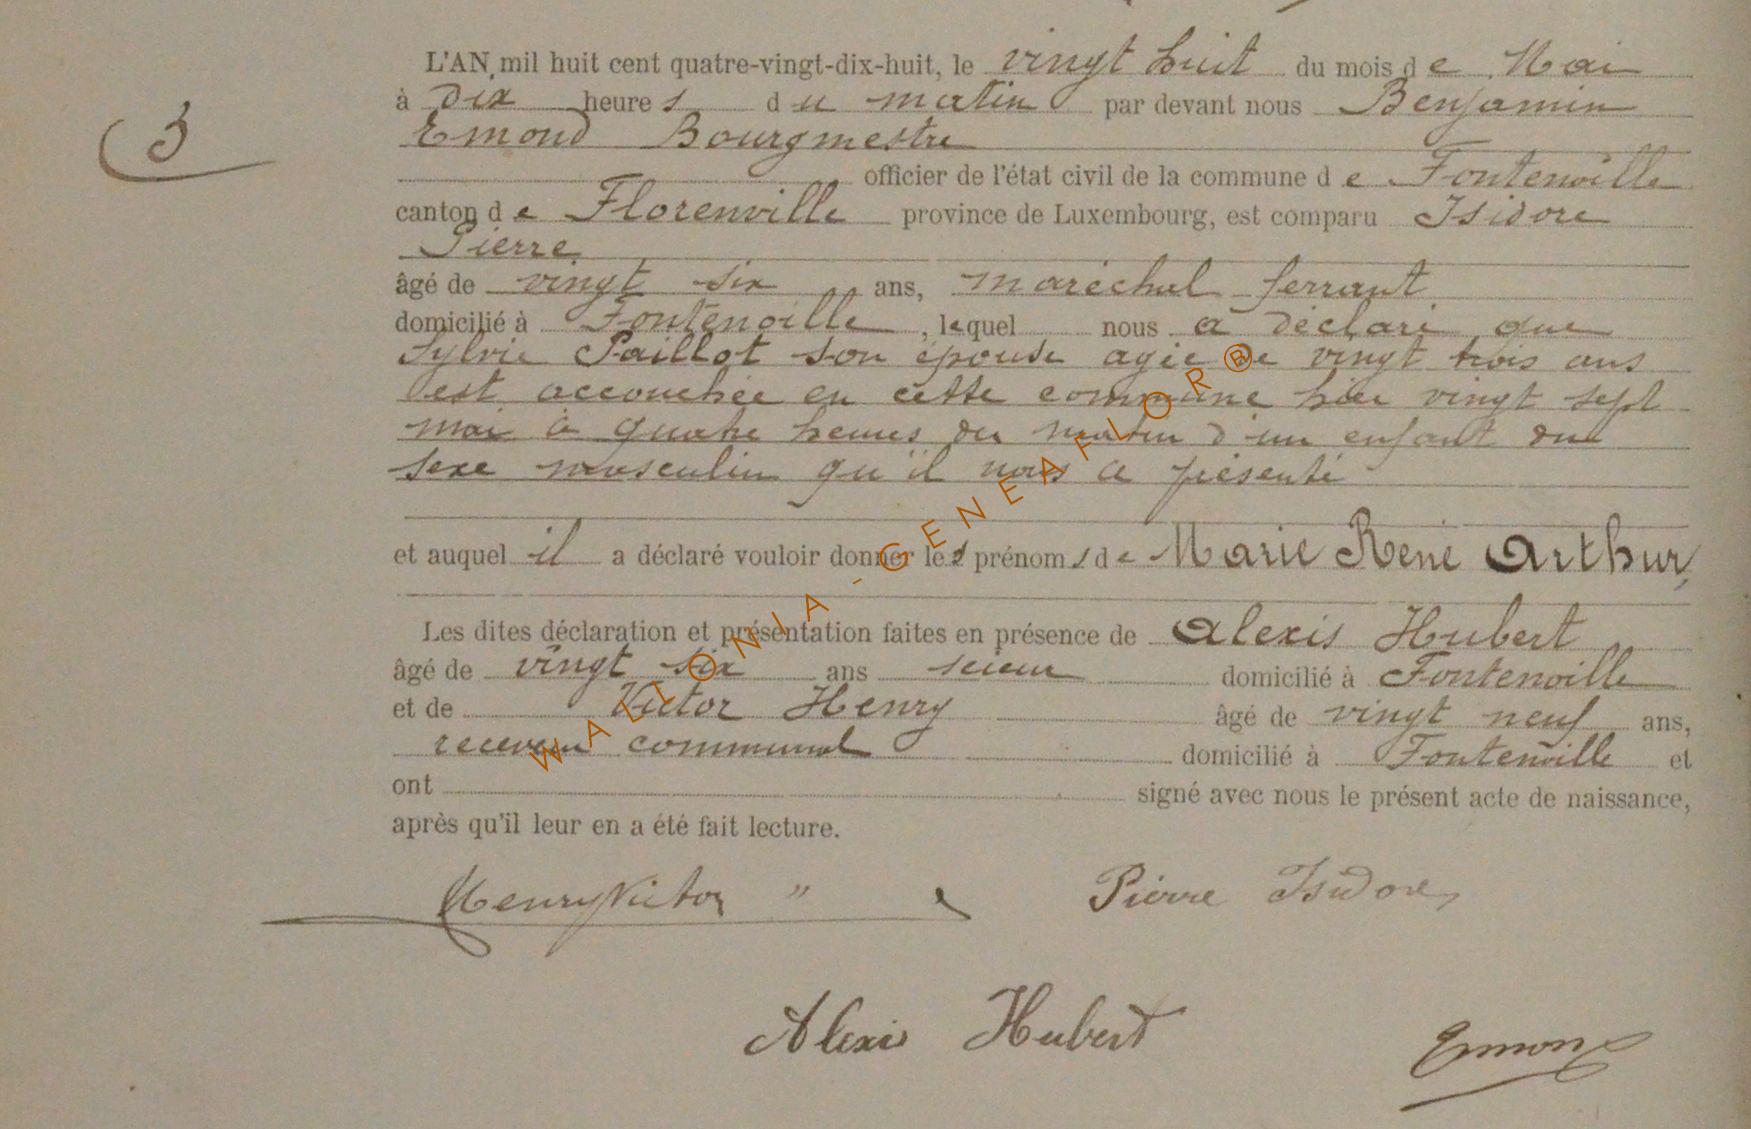 L'AN mil huit cent quatre-vingt-dix-huit, le vingt huit du mois de Mai
3
à Dix heures du matin par devant nous Benjamin
Emond Bourgmestre
officier de l'état civil de la commune de Fontenoille
canton de Florenville province de Luxembourg, est comparu Isidore
Pierre
âgé de vingt six ans, maréchal ferrant
domicilié à Fontenoille, lequel nous a déclaré que
Sylvie Paillot son épouse agée de vingt trois ans
est accouchée en cette commune hier vingt sept
mai à quatre heures du matin d'un enfant du
sexe masculin qu'il nous a présenté
et auquel il a déclaré vouloir donner les prénoms de Marie René Arthur,
Les dites déclaration et présentation faites en présence de Alexis Hubert
âgé de vingt six ans scieur domicilié à Fontenoille
et de Victor Henry âgé de vingt neuf ans,
receveur communal domicilié à Fontenoille et
ont signé avec nous le présent acte de naissance,
après qu'il leur en a été fait lecture.
Henry Victor Pierre Isidore
Alexis Hubert Emond
WALLONIA-GENEAFLOR®